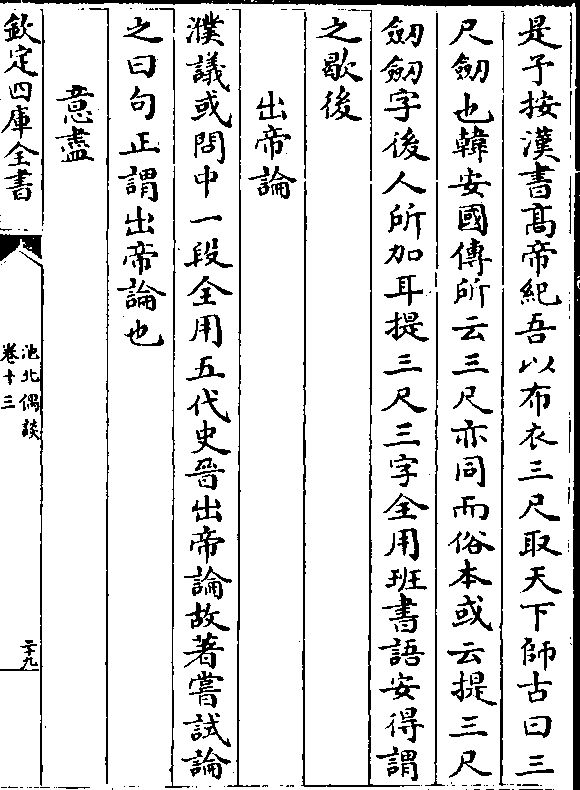 是予按漢書髙帝紀吾以布衣三尺取天下師古曰三
尺劒也韓安國傳所云三尺亦同而俗本或云提三尺
劒劒字後人所加耳提三尺三字全用班書語安得謂
之歇後
出帝論
濮議或問中一段全用五代史晉出帝論故著嘗試論
之曰句正謂出帝論也
意盡
欽定四庫全書
池北偶談
卷十三
二十九